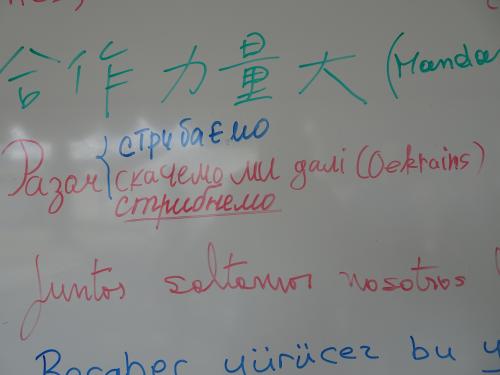 合作力量大 (Manda
стрибаємо
Разам скачемо ми далі (Oekrains)
стрибнемо
Juntos saltamos nosotros
Beraber yürücez bu y